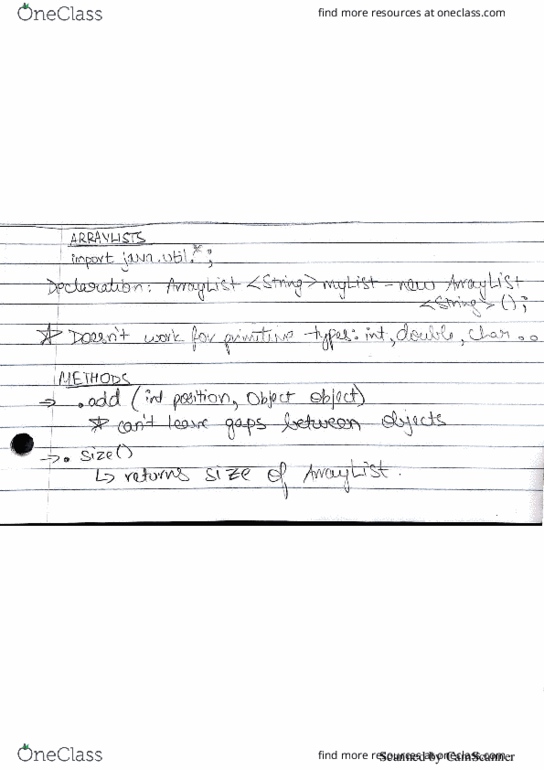 OneClass
find more resources at oneclass.com
ARRAYLISTS
import java.util.*;
Declaration: ArrayList <String> myList = new ArrayList
<String>();
☆ Doesn't work for primitive types: int, double, char..
METHODS
→ .add (int position, Object object)
☆ can't leave gaps between objects
→ . size()
↳ returns size of ArrayList.
OneClass
find more resources at oneclass.com
Scanned by CamScanner